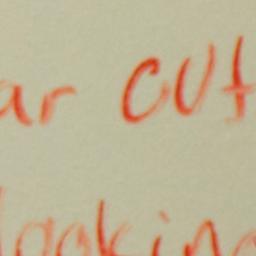 ar cut
looking